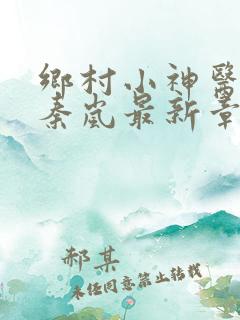 鄉村小神醫
秦嵐最新章
郝某
未经同意禁止转载